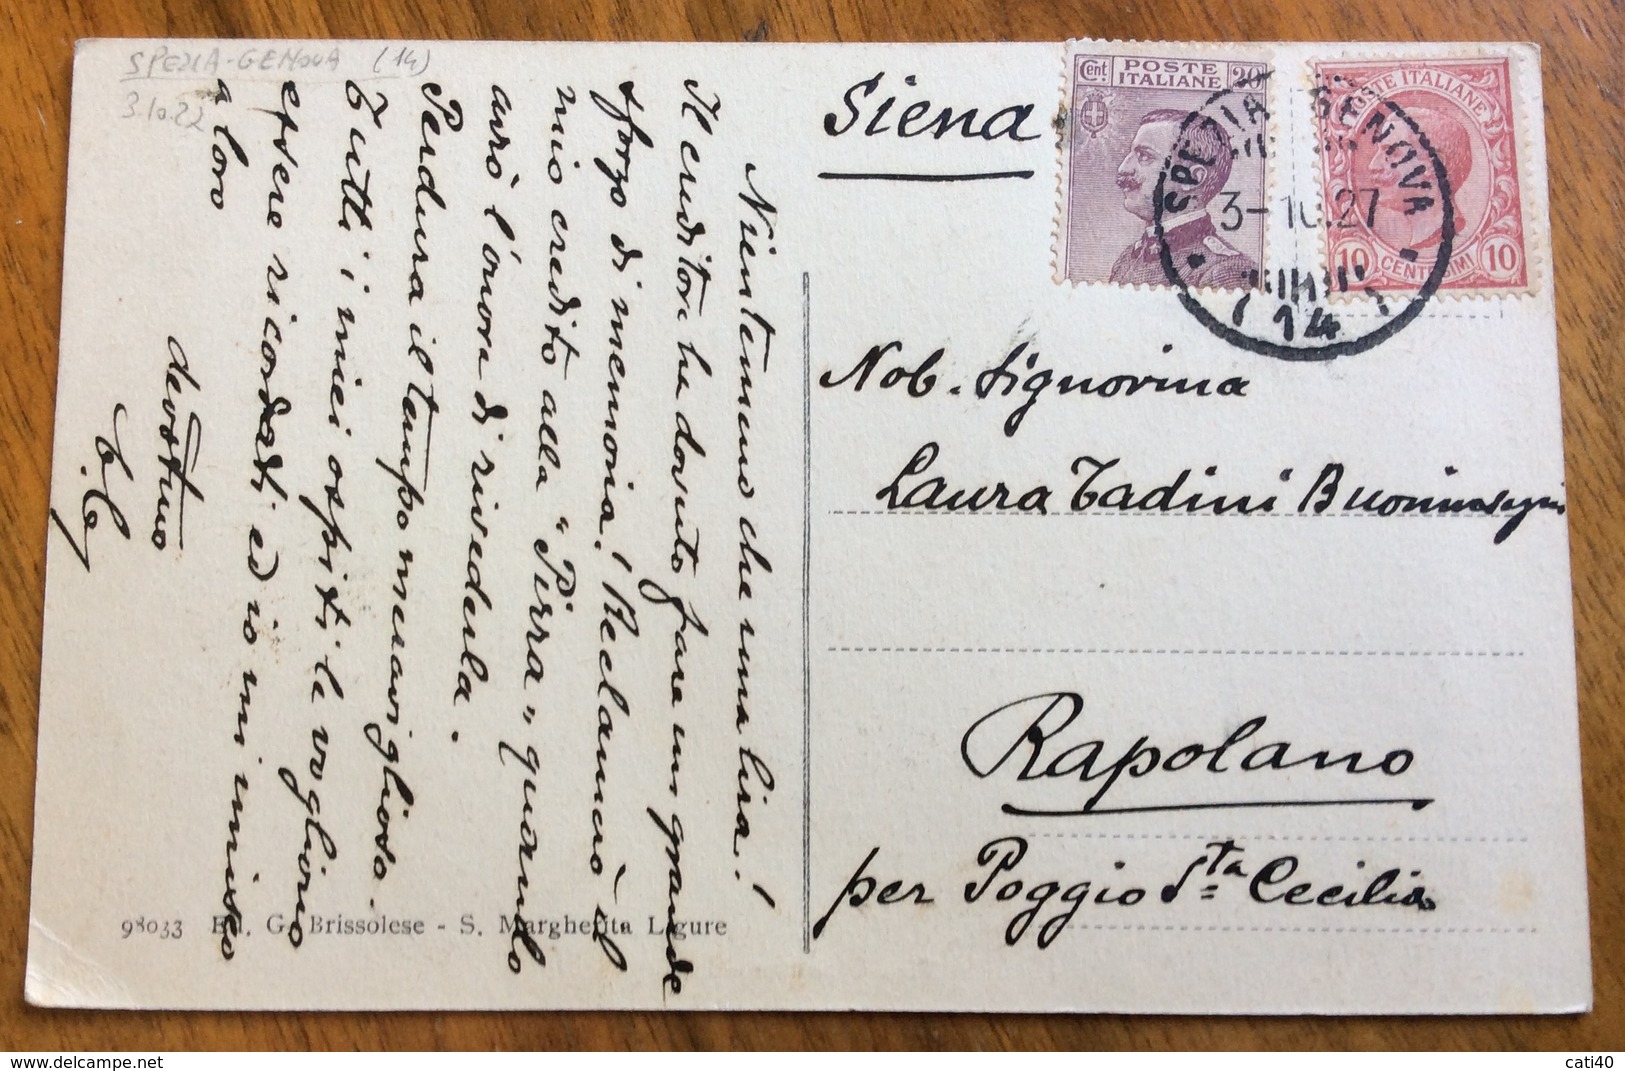 SPEZIA-GENOVA (14)
3.10.22
Siena
Cent. POSTE ITALIANE 20
POSTE ITALIANE
10 CENTESIMI 10
SPEZIA GENOVA
3-10.27
14
Nob. Signorina
Laura Tadini Buoninsegni
Rapolano
per Poggio Sta Cecilia
Nientemeno che una lira!
Il creditore ha dovuto fare un grande
sforzo di memoria! Reclamerò il
mio credito alla "Pirra" quando
avrò l'onore di rivederla.
Perdura il tempo meraviglioso.
Tutti i miei ospiti le vogliono
essere ricordati ed io mi unisco
a loro
devotmo
98033 Ed. G. Brissolese - S. Margherita Ligure
cati40